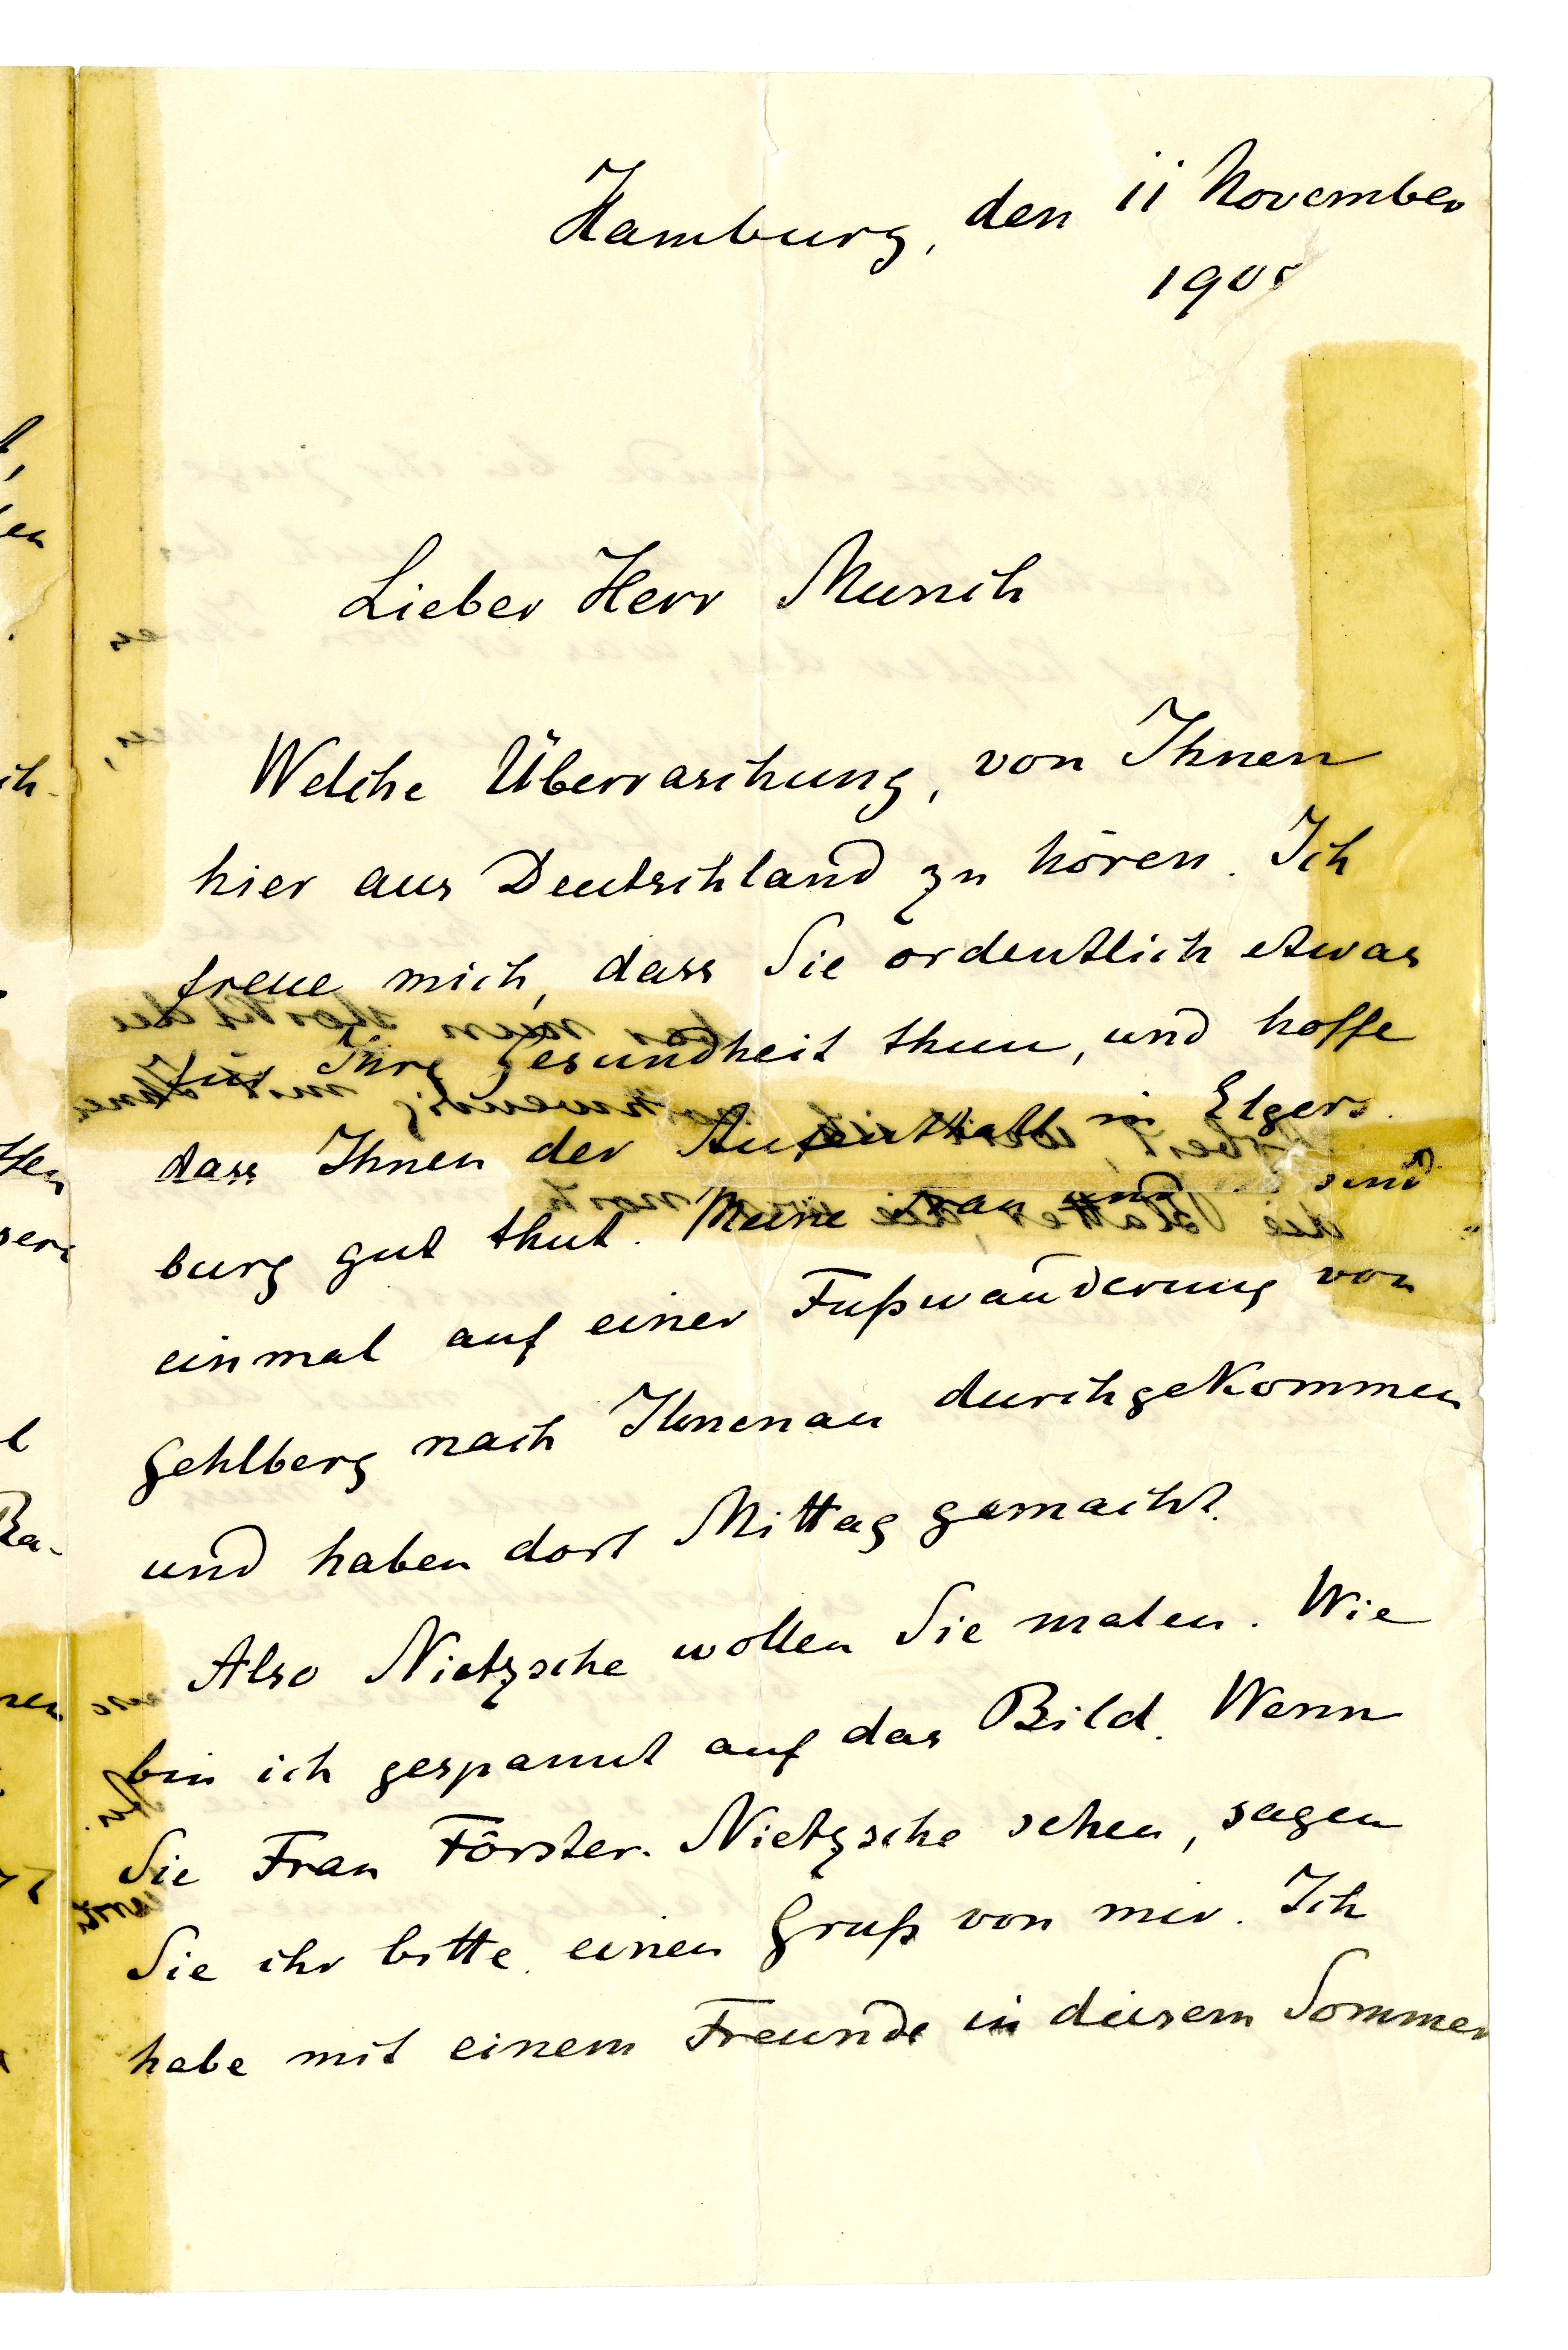 Hamburg, den 11 November
1905
Lieber Herr Munch
Welche Überraschung, von Ihnen
hier aus Deutschland zu hören. Ich
freue mich, dass Sie ordentlich etwas
für Ihre Gesundheit thun, und hoffe
dass Ihnen der Aufenthalt in Elgers-
burg gut thut. Meine Frau und sind
einmal auf einer Fußwanderung von
Gehlberg nach Ilmenau durchgekommen
und haben dort Mittag gemacht.
Also Nietzsche wollen Sie malen. Wie
bin ich gespannt auf das Bild. Wenn
Sie Frau Förster-Nietzsche sehen, sagen
Sie ihr bitte einen Gruß von mir. Ich
habe mit einem Freunde in diesem Sommer